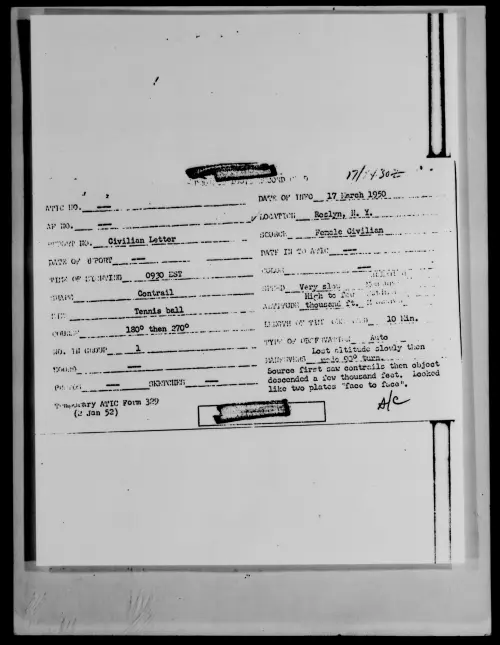 17/1430Z
ATIC NO. —
DATE OF INFO 17 March 1950
AF NO. —
LOCATION Roslyn, N. Y.
REPORT NO. Civilian Letter
SOURCE Female Civilian
DATE OF REPORT —
DATE IN TO ATIC —
TIME OF SIGHTING 0930 EST
COLOR —
SHAPE Contrail
SPEED Very slow
SIZE Tennis ball
ALTITUDE High to few thousand ft.
COURSE 180° then 270°
LENGTH OF TIME OBSERVED 10 Min.
NO. IN GROUP 1
TYPE OF OBSERVATION Auto
SOUND —
MANEUVERS Lost altitude slowly then
made 90° turn.
PHOTOS — SKETCHES —
Source first saw contrails then object
descended a few thousand feet. Looked
like two plates "face to face".
Temporary ATIC Form 329
(2 Jan 52)
A/C